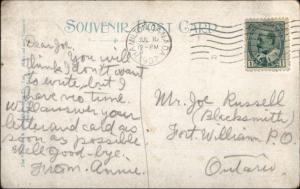 SOUVENIR POST CARD
JUL 10
12-PM
1 1
Dear Joe. You will
think I don't want
to write, but I
have no time.
Will answer your
letter and card as
soon as possible
Well Good-bye.
From Annie.
Mr. Joe Russell
(Blacksmith)
Fort William P.O.
Ontario